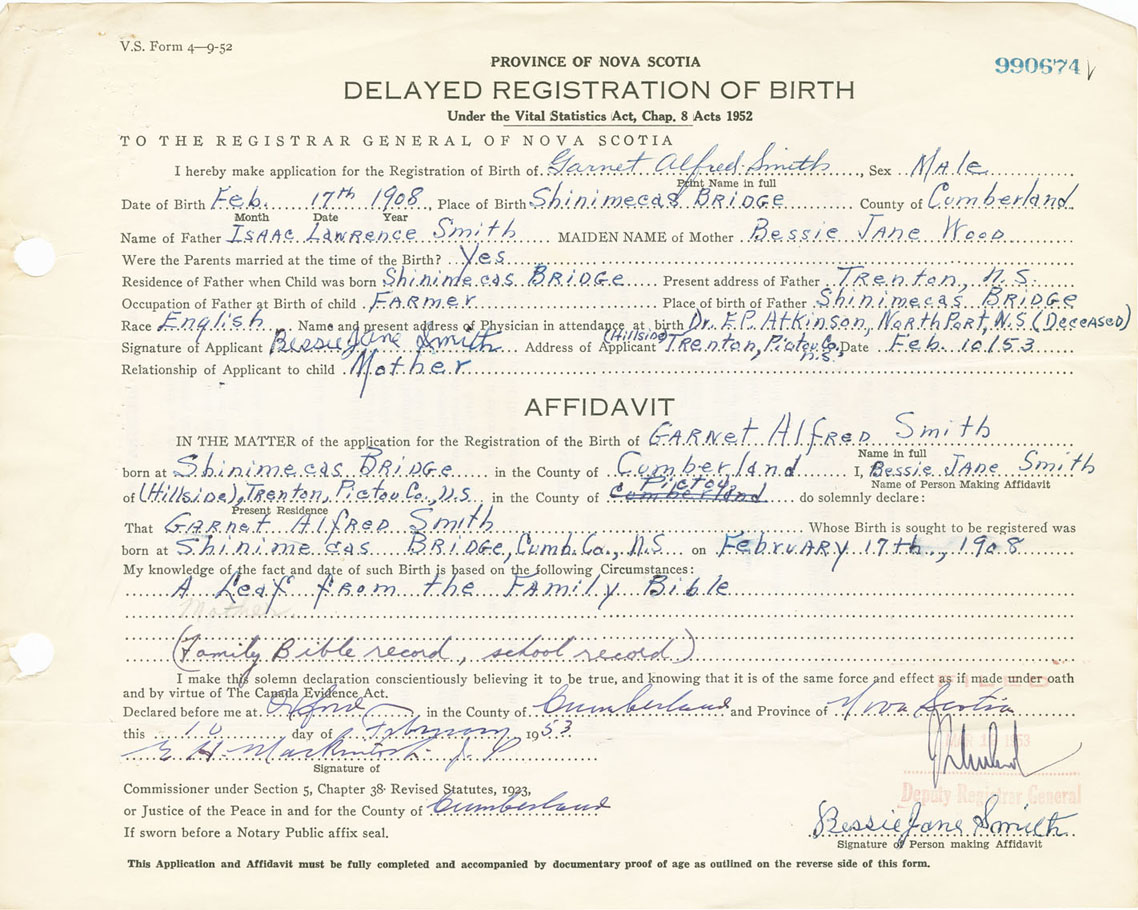 V.S. Form 4—9-52
PROVINCE OF NOVA SCOTIA
990674
DELAYED REGISTRATION OF BIRTH
Under the Vital Statistics Act, Chap. 8 Acts 1952
TO THE REGISTRAR GENERAL OF NOVA SCOTIA
I hereby make application for the Registration of Birth of Garnet Alfred Smith, Sex Male
Print Name in full
Date of Birth Feb. 17th 1908, Place of Birth Shinimecas Bridge County of Cumberland
Month Date Year
Name of Father Isaac Lawrence Smith MAIDEN NAME of Mother Bessie Jane Wood
Were the Parents married at the time of the Birth? Yes
Residence of Father when Child was born Shinimecas Bridge Present address of Father Trenton, N.S.
Occupation of Father at Birth of child Farmer Place of birth of Father Shinimecas Bridge
Race English Name and present address of Physician in attendance at birth Dr. E.P. Atkinson, NorthPort, N.S (Deceased)
Signature of Applicant Bessie Jane Smith Address of Applicant (Hillside) Trenton, Pictou Co. N.S. Date Feb. 10/53
Relationship of Applicant to child Mother
AFFIDAVIT
IN THE MATTER of the application for the Registration of the Birth of Garnet Alfred Smith
Name in full
born at Shinimecas Bridge in the County of Cumberland I, Bessie Jane Smith
Name of Person Making Affidavit
of (Hillside), Trenton, Pictou Co., N.S in the County of Cumberland Pictou do solemnly declare:
Present Residence
That Garnet Alfred Smith Whose Birth is sought to be registered was
born at Shinimecas Bridge, Cumb. Co., N.S on February 17th, 1908
My knowledge of the fact and date of such Birth is based on the following Circumstances:
A Leaf from the Family Bible
Mother
(Family Bible record, school record)
I make this solemn declaration conscientiously believing it to be true, and knowing that it is of the same force and effect as if made under oath
and by virtue of The Canada Evidence Act.
Declared before me at Oxford in the County of Cumberland and Province of Nova Scotia
this 10 day of February 1953
E H Mackintosh J P
Signature of
Commissioner under Section 5, Chapter 38 Revised Statutes, 1923,
Deputy Registrar General
or Justice of the Peace in and for the County of Cumberland
If sworn before a Notary Public affix seal.
Bessie Jane Smith
Signature of Person making Affidavit
This Application and Affidavit must be fully completed and accompanied by documentary proof of age as outlined on the reverse side of this form.